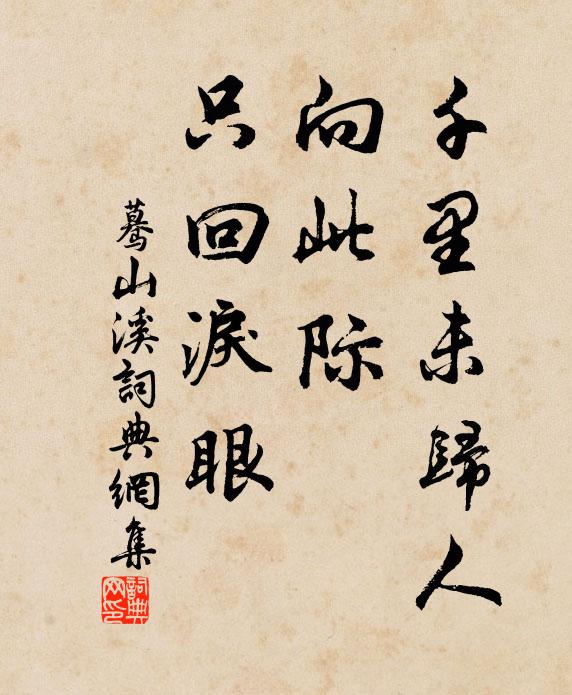 千里未歸人
向此际
只回淚眼
驀山溪詞典網集
詞典
网印